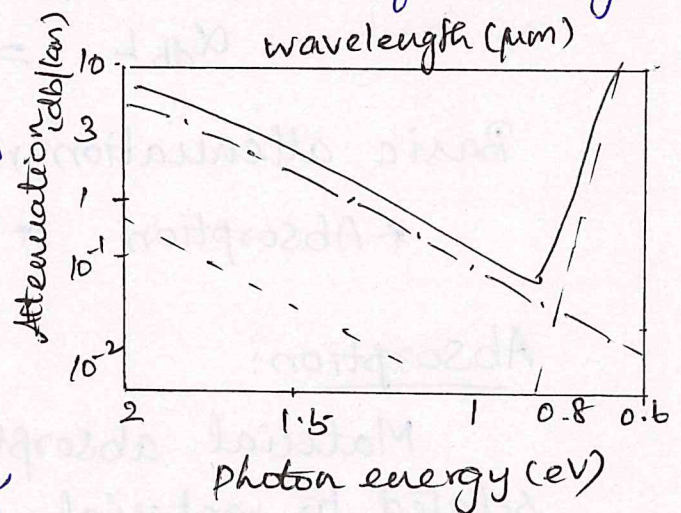 wavelength (μm)
Attenuation
(db/km)
10
3
1
10⁻¹
10⁻²
2 1.5 1 0.8 0.6
photon energy (eV)